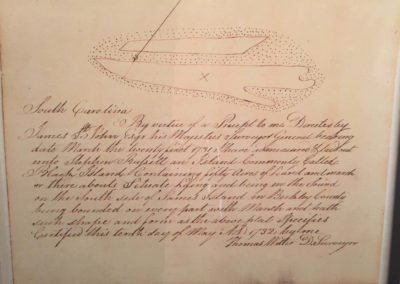 South Carolina
By virtue of a Precept to me Directed by
James St. John Esqr his Majesties Surveyor General bearing
date March the twenty 1731 I have Admeasured & laid out
unto Stephen Russell an Island Commonly Called
Island Containing fifty Acres of Land and marsh
or there abouts Situate lying and being in the Sound
on the South side of James Island in Berkley County
being bounded on every part with Marsh and hath
such shape and form as the above plat Specifies
Certified this tenth day of May AD 1732 by me
Thomas Witter D. Surveyor